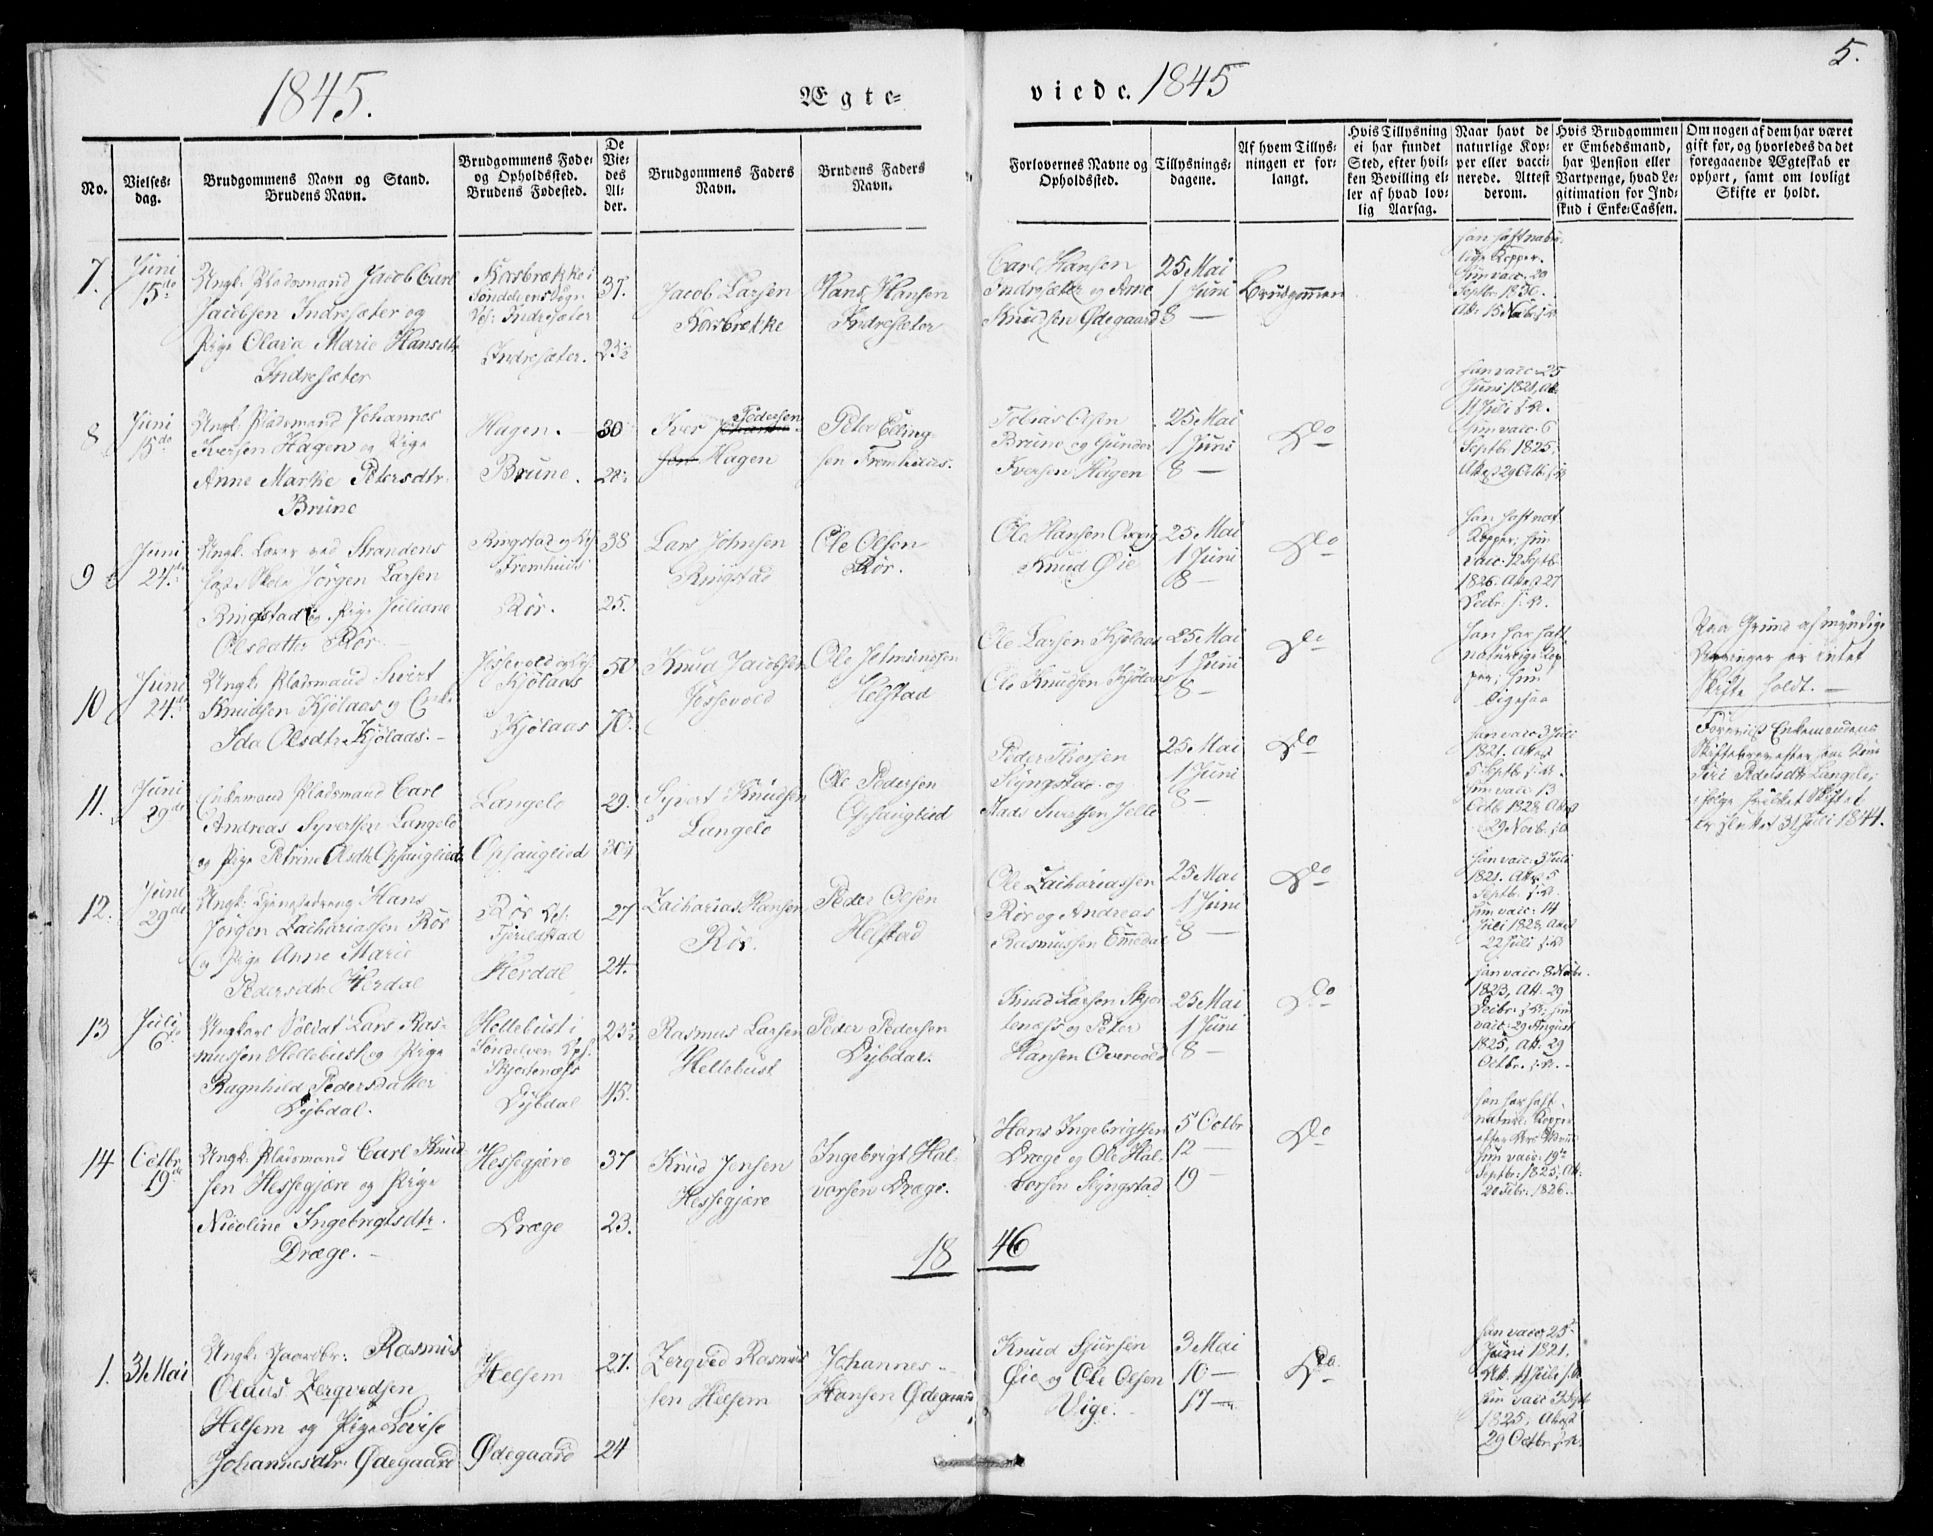 1845.
Ægte=
viede. 1845
5.
No.
Vielses-
dag.
Brudgommens Navn og Stand.
Brudens Navn.
Brudgommens Føde-
og Opholdssted.
Brudens Fødested.
De
Vie-
des
Al-
der.
Brudgommens Faders
Navn.
Brudens Faders
Navn.
Forlovernes Navne og
Opholdssted.
Tillysnings-
dagene.
Af hvem Tillys-
ningen er for-
langt.
Hvis Tillysning
ei har fundet
Sted, efter hvil-
ken Bevilling el-
ler af hvad lov-
lig Aarsag.
Naar havt de
naturlige Kop-
per eller vacci-
nerede. Attest
derom.
Hvis Brudgommen
er Embedsmand,
har Pension eller
Vartpenge, hvad Le-
gitimation for Ind-
skud i Enke-Cassen.
Om nogen af dem har været
gift før, og hvorledes da det
foregaaende Ægteskab er
ophørt, samt om lovligt
Skifte er holdt.
7.
Juni
15de
Ungk: Pladsmand Jacob Carl
Jacobsen Indresæter og
Pige Olava Marie Hansdtr
Indresæter
Korsbrække i
Søndelvens Sogn
Indresæter
Indresæter.
37.
23½
Jacob Larsen
Korsbrække
Hans Hansen
Indresæter
Carl Hansen
Indresæter og Arne
Knudsen Ødegaard
25 Mai
1 Juni
8 —
Brudgommen
han haft natur-
lige Kopper.
hun vacc: 20
Septbr 1830.
8
Juni
15de
Ungk: Pladsmand Johannes
Iversen Hagen og Pige
Anne Marthe Petersdtr.
Brune
Hagen. —
Brune.
30
28:
Iver Pedersen
Hagen
Peter Elling-
sen Fremhuus.
Tobias Olsen
Brune og Gunder
Iversen Hagen
25 Mai
1 Juni
8 —
Do
han vacc: 25
Juni 1821, Att:
11 Juli s: A.
hun vacc: 6
Septbr 1825,
Att: 29 Octbr: s: A
9
Juni
24de
Ungk: Lærer ved Strandens
faste Skole Jørgen Larsen
Ringstad og Pige Juliane
Olsdatter Rør.
Ringstad og
Fremhuus
Rør.
38
25.
Lars Johnsen
Ringstad
Ole Olsen
Rør.
Ole Hansen
Knud Øie
25 Mai
1 Juni
8 —
Do
han haft nat:
Kopper; hun
vacc: 12 Septb:
1826. Attest 27
Decbr. s: A.
10
Juni
24de
Ungk: Pladsmand Sivert
Knudsen Kjølaas og Enke
Ida Olsdtr Kjølaas. —
Kjølaas
Kjølaas
50
70.
Knud Jacobsen
Jossevold
Ole Jetmundsen
Helstad
Ole Larsen Kjølaas
Ole Knudsen Kjølaas
25 Mai
1 Juni
8 —
Do
han har haft
naturlige Kop-
per; hun
ligesaa
Paa Grund af myndige
Arvinger er intet
Skifte holdt. —
11.
Juni
29de
Enkemand Pladsmand Carl
Andreas Syvertsen Langelo
og Pige Petrine Olsdtr Ophauglied.
Langelo
Ophauglied
29.
30½
Syvert Knudsen
Langelo
Ole Pedersen
Ophauglied
Peder Thorsen
Slyngstad og
Mads Ivertsen Jelle
25 Mai
1 Juni
8 —
Do
han vacc 3 Juli
1821. Attest
5 Septbr s: A.
hun vacc: 13
Octbr 1828, Attest
29 Novb. s: A
Foreviist Enkemandens
Skiftebrev efter hans Kone
Siri Pedersdtr Langelo,
ifølge hvilket Skiftet
er sluttet 31 Juli 1844.
12.
Juni
29de
Ungk: Tjenestedreng Hans
Jørgen Zachariassen Rør
og Pige Anne Marie
Pedersdtr Herdal
Rør
Fjørildstad
Herdal
27
24.
Zacharias Hansen
Rør.
Peder Olsen
Helstad
Ole Zachariassen
Rør og Andreas
Rasmussen Emedal
25 Mai
1 Juni
8 —
Do
han vacc: 3 Juli
1821. Att: 5
Septbr. s: A.
hun vacc: 14
Juli 1828, Attest
22 Juli s: A
13
Juli
6te
Ungkarl Soldat Lars Ras-
mussen Hellebust og Pige
Ragnhild Pedersdatter
Dybdal.
Hellebust i
Søndelven
Skjortenæss
Dybdal
23½
45.
Rasmus Larsen
Hellebust
Peder Pedersen
Dybdal.
Knud Larsen Skjor-
tenæss og Peter
Hansen Overvold
25 Mai
1 Juni
8 —
Do
han vacc: 8 Novbr.
1823, Att. 29
Decbr: s: A; hun
vacc: 29 August
1825, Att. 29
Octbr. s: A. —
14
Octbr
19de
Ungk: Pladsmand Carl Knud-
sen Hessegjære og Pige
Nicoline Ingebrigtsdtr.
Dræge. —
Hessegjære
Dræge
37
23.
Knud Jensen
Hessegjære
Ingebrigt Hal-
vorsen Dræge.
Hans Ingebrigtsen
Dræge og Ole Hal-
vorsen Slyngstad
5 Octbr
12 —
19 —
Do
han har haft
naturl: Kopper
hun vacc: 19de
Septbr: 1825, Att.
20 Febr: 1826.
18 46
1.
31 Mai
Ungk: Gaardbr: Rasmus
Olaus Zergvedsen
Helsem og Pige Lovise
Johannesdtr: Ødegaard
Helsem
Ødegaard
27.
24
Zergved Rasmus-
sen Helsem
Johannes
Hansen Ødegaard
Knud Sjursen
Øie og Ole Olsen
Vige.
3 Mai
10 —
17 —
Do
han vacc 25de
Juni 1821,
Att. 11 Juli s: A.
hun vacc 3 Septbr
1825, Attest
29 Octbr: s: A.